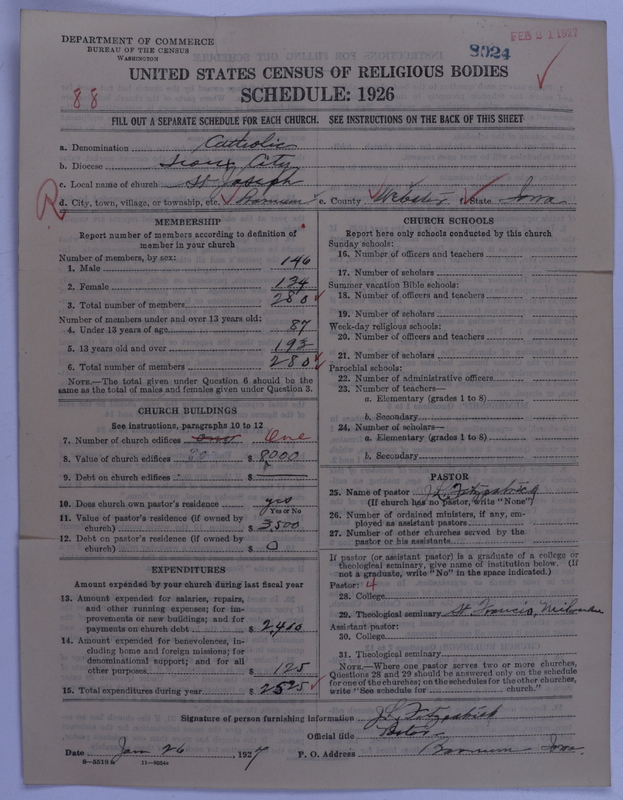 DEPARTMENT OF COMMERCE
BUREAU OF THE CENSUS
WASHINGTON
8024
FEB 21 1927
UNITED STATES CENSUS OF RELIGIOUS BODIES
88
SCHEDULE: 1926
FILL OUT A SEPARATE SCHEDULE FOR EACH CHURCH. SEE INSTRUCTIONS ON THE BACK OF THIS SHEET
a. Denomination Catholic
b. Diocese Sioux City
c. Local name of church St Joseph
R
d. City, town, village, or township, etc. Barnum e. County Webster f. State Iowa
MEMBERSHIP
Report number of members according to definition of
member in your church
Number of members, by sex:
1. Male 146
2. Female 134
3. Total number of members 280
Number of members under and over 13 years old:
4. Under 13 years of age 87
5. 13 years old and over 193
6. Total number of members 280
NOTE.—The total given under Question 6 should be the
same as the total of males and females given under Question 3.
CHURCH BUILDINGS
See instructions, paragraphs 10 to 12
7. Number of church edifices One
8. Value of church edifices $ 8000
9. Debt on church edifices $
10. Does church own pastor's residence yes
Yes or No
11. Value of pastor's residence (if owned by
church) $ 3,500
12. Debt on pastor's residence (if owned by
church) $ 0
EXPENDITURES
Amount expended by your church during last fiscal year
13. Amount expended for salaries, repairs,
and other running expenses; for im-
provements or new buildings; and for
payments on church debt $ 2,400
14. Amount expended for benevolences, in-
cluding home and foreign missions; for
denominational support; and for all
other purposes $ 125
15. Total expenditures during year $ 2525
CHURCH SCHOOLS
Report here only schools conducted by this church
Sunday schools:
16. Number of officers and teachers
17. Number of scholars
Summer vacation Bible schools:
18. Number of officers and teachers
19. Number of scholars
Week-day religious schools:
20. Number of officers and teachers
21. Number of scholars
Parochial schools:
22. Number of administrative officers
23. Number of teachers—
a. Elementary (grades 1 to 8)
b. Secondary
24. Number of scholars—
a. Elementary (grades 1 to 8)
b. Secondary
PASTOR
25. Name of pastor J L Fitzpatrick
(If church has no pastor, write "None")
26. Number of ordained ministers, if any, em-
ployed as assistant pastors
27. Number of other churches served by the
pastor or his assistants
If pastor (or assistant pastor) is a graduate of a college or
theological seminary, give name of institution below. (If
not a graduate, write "No" in the space indicated.)
Pastor: 4
28. College
29. Theological seminary St Francis, Milwaukee
Assistant pastor:
30. College
31. Theological seminary
NOTE.—Where one pastor serves two or more churches,
Questions 28 and 29 should be answered only on the schedule
for one of the churches; on the schedules for the other churches,
write "See schedule for church."
Signature of person furnishing information J L Fitzpatrick
Official title Pastor
Date Jan 26, 1927 P. O. Address Barnum Iowa
8—5519 b 11—9034a